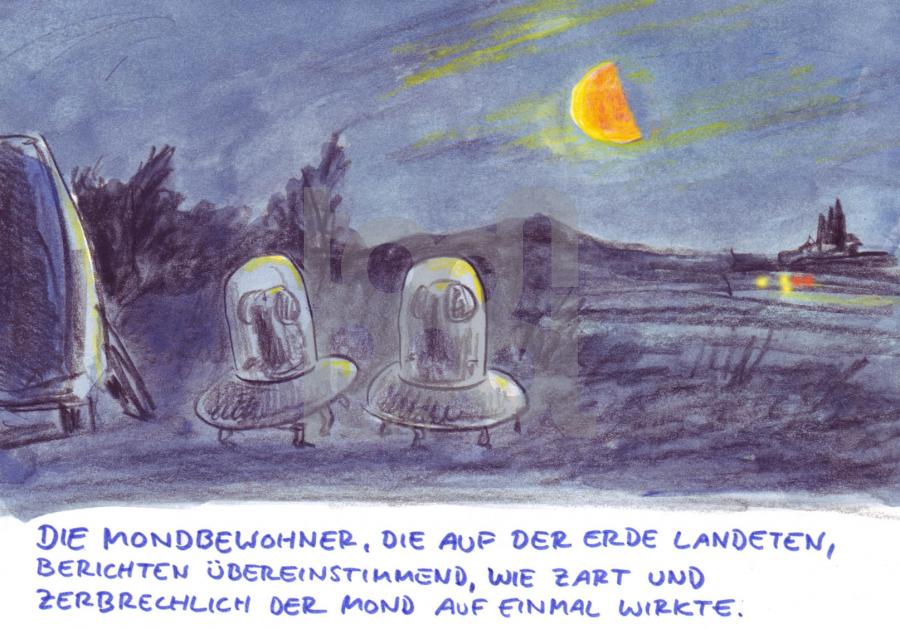 DIE MONDBEWOHNER, DIE AUF DER ERDE LANDETEN,
BERICHTEN ÜBEREINSTIMMEND, WIE ZART UND
ZERBRECHLICH DER MOND AUF EINMAL WIRKTE.